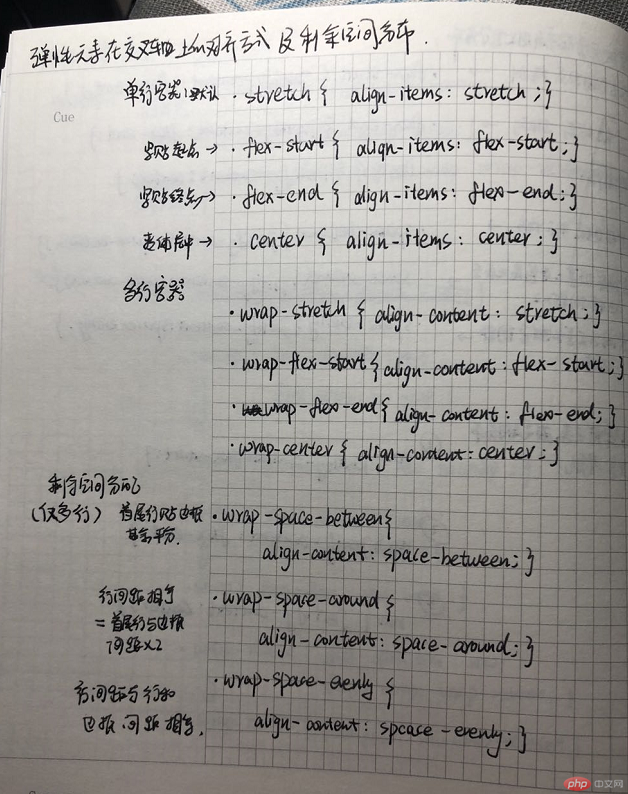 弹性元素在交叉轴上的对齐方式及剩余空间分布.
Cue
单行容器:默认 · stretch { align-items: stretch ; }
紧贴起点 → · flex-start { align-items: flex-start ; }
紧贴终点 → · flex-end { align-items: flex-end ; }
整体居中 → · center { align-items: center ; }
多行容器
· wrap-stretch { align-content : stretch ; }
· wrap-flex-start { align-content : flex-start ; }
· wrap-flex-end { align-content : flex-end ; }
· wrap-center { align-content : center ; }
剩余空间分配
(仅多行) 首尾行贴边报 · wrap-space-between {
其余平分. align-content : space-between ; }
行间距相等 · wrap-space-around {
= 首尾行与边报
间距×2 align-content : space-around ; }
· wrap-space-evenly {
行间距与行和
边报间距相等. align-content : spcace-evenly ; }
php 中文网